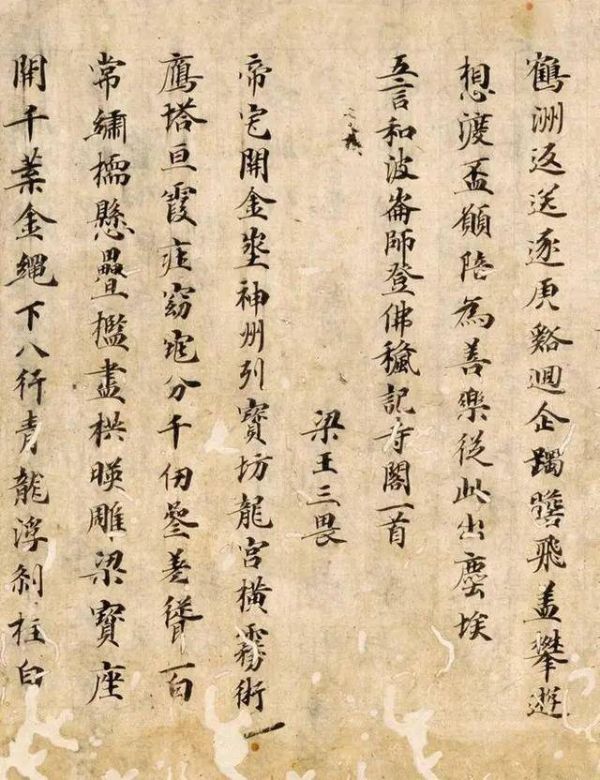 鶴洲返送逐虎谿迴企躅驂飛盖攀遊
想渡盃願陪為善樂從此出塵埃
五言和波崙師登佛𥠢記寺閣一首
梁王三畏
帝宅開金埊神州列寶坊龍宮橫霧術一
鴈塔亘霞庄窈窕分千仞叅差聳一百
常繡檽懸疊檻畫栱暎雕梁寶座
開千葉金繩下八行青龍浮刹柱白